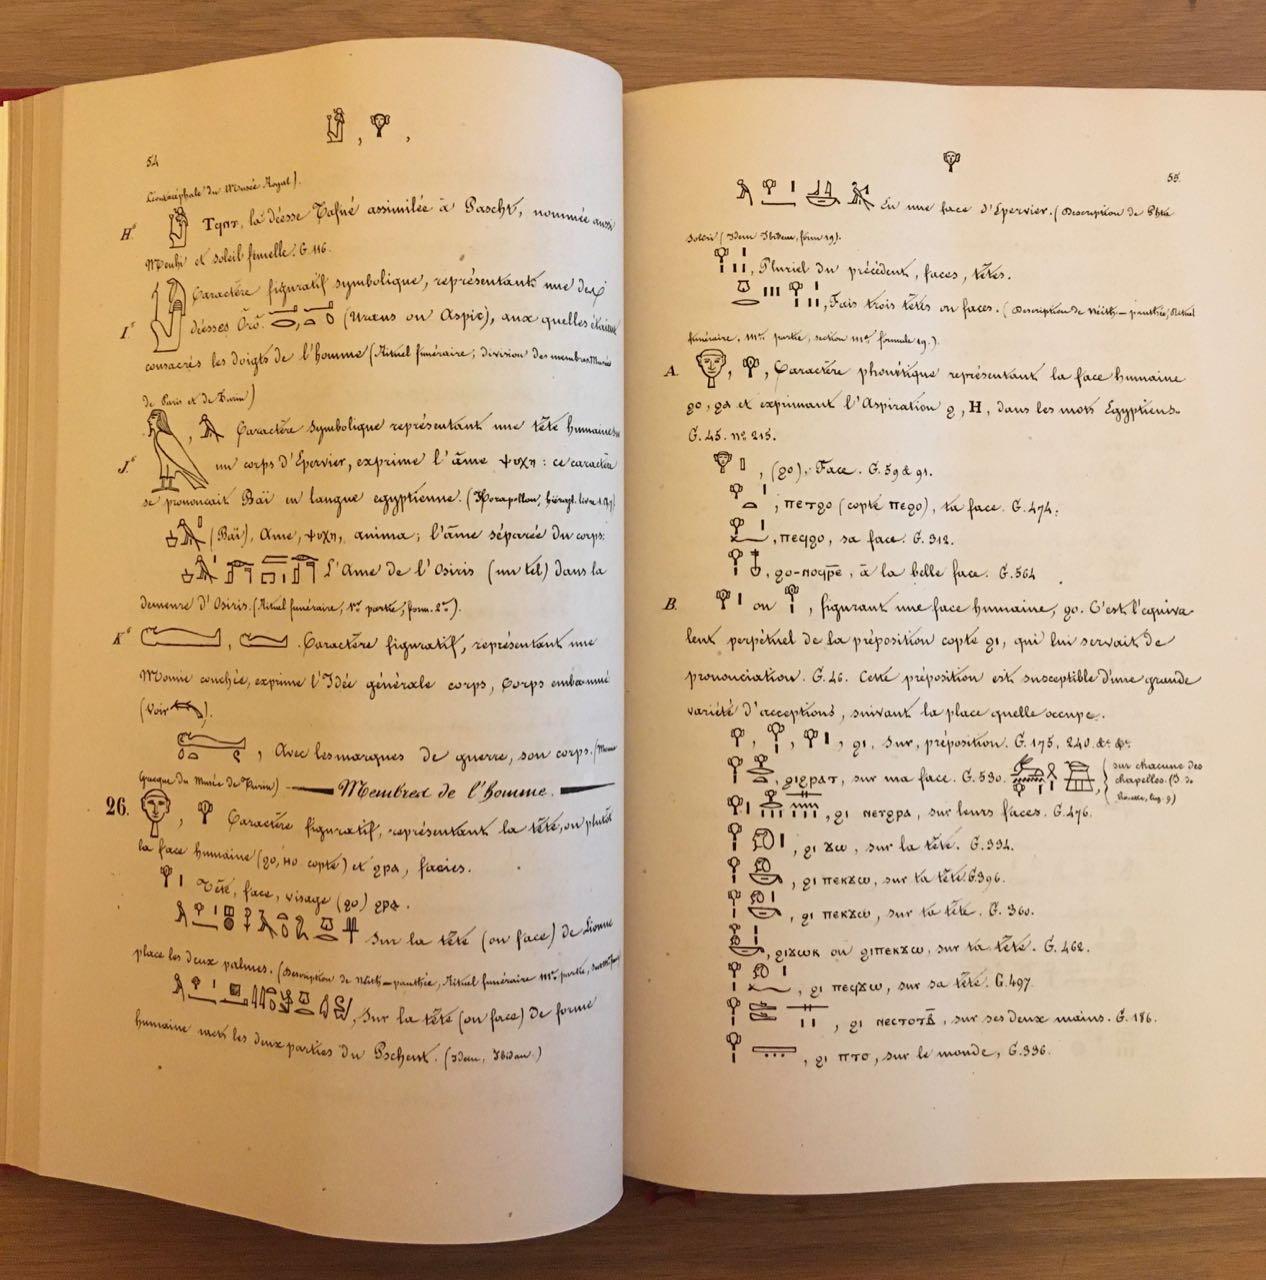 54
Léontocéphale du Musée Royal).
H⁶ Ⲧϥⲛⲧ, la déesse Tafné assimilée à Pascht, nommée aussi
Menhi et soleil femelle. G. 116.
I⁶ Caractère figuratif symbolique, représentant une des
déesses Örö. (Uræus ou Aspic), aux quelles étaient
consacrés les doigts de l'homme (Rituel funéraire; division des membres Musées
de Paris et de Turin)
J⁶ , Caractère symbolique représentant une tête humaine
un corps d'Epervier, exprime l'âme ψυχη : ce caractère
se prononçait Baï en langue egyptienne. (Horapollon, hiérogl. livre 1.
(Baï), Ame, ψυχη, anima; l'âme séparée du corps.
L'Ame de l'Osiris (un tel) dans la
demeure d'Osiris. (Rituel funéraire, 1re partie, form. 2e).
K⁶ , . Caractère figuratif, représentant une
Momie couchée, exprime l'Idée générale corps, Corps embaumé
(Voir ).
, Avec les marques de guerre, son corps. (Momie
Grecque du Musée de Turin)
Membres de l'homme.
26. , Caractère figuratif, représentant la tête, ou plutôt
la face humaine (ϩⲟ, ⲏⲟ copte) et ϩⲣⲁ, facies.
Tête, face, visage (ϩⲟ) ϩⲣⲁ.
Sur la tête (ou face) de Lionne
place les deux palmes. (Description de Neith-panthée, Rituel funéraire IIIe partie,
, Sur la tête (ou face) de forme
humaine mets les deux parties du Pschent. (Idem, Ibidem.)
55.
En une face d'Epervier. (Description de Phtha
Soleil (Idem Ibidem, form. 19).
, Pluriel du précédent, faces, têtes.
, Fais trois têtes ou faces. (Description de Neith-panthée, Rituel
funéraire, IIIe partie, section IIIe formule 19.).
A. , , Caractère phonétique représentant la face humaine
ϩⲟ, ϩⲁ et exprimant l'Aspiration ϩ, H, dans les mots Egyptiens.
G. 45. nº 215.
, (ϩⲟ). Face. G. 59 & 91.
, ⲡⲉⲧϩⲟ (copte ⲡⲉϩⲟ), ta face. G. 474.
, ⲡⲉϥϩⲟ, sa face. G. 312.
, ϩⲟ-ⲛⲟϥⲣⲉ, à la belle face. G. 564
B. ou , figurant une face humaine, ϩⲟ. C'est l'équiva
lent perpétuel de la préposition copte ϩⲓ, qui lui servait de
prononciation. G. 46. Cette préposition est susceptible d'une grande
variété d'acceptions, suivant la place qu'elle occupe.
, , , ϩⲓ, sur, préposition. G. 175, 240. &c &c.
, ϩⲓϩⲣⲁⲧ, sur ma face. G. 530. sur chacune des
chapelles. (I. de
Rosette, lig. 9)
, ϩⲓ ⲛⲉⲧϩⲣⲁ, sur leurs faces. G. 476.
, ϩⲓ ϫⲱ, sur la tête. G. 334.
, ϩⲓ ⲡⲉⲕϫⲱ, sur ta tête. G. 396.
, ϩⲓ ⲡⲉⲕϫⲱ, sur ta tête. G. 360.
, ϩⲓϫⲱⲕ ou ϩⲓⲡⲉⲕϫⲱ, sur ta tête. G. 462.
, ϩⲓ ⲡⲉϥϫⲱ, sur sa tête. G. 497.
, ϩⲓ ⲛⲉⲥⲧⲟⲧⲃ̄, sur ses deux mains. G. 186.
, ϩⲓ ⲡⲧⲟ, sur le monde, G. 336.